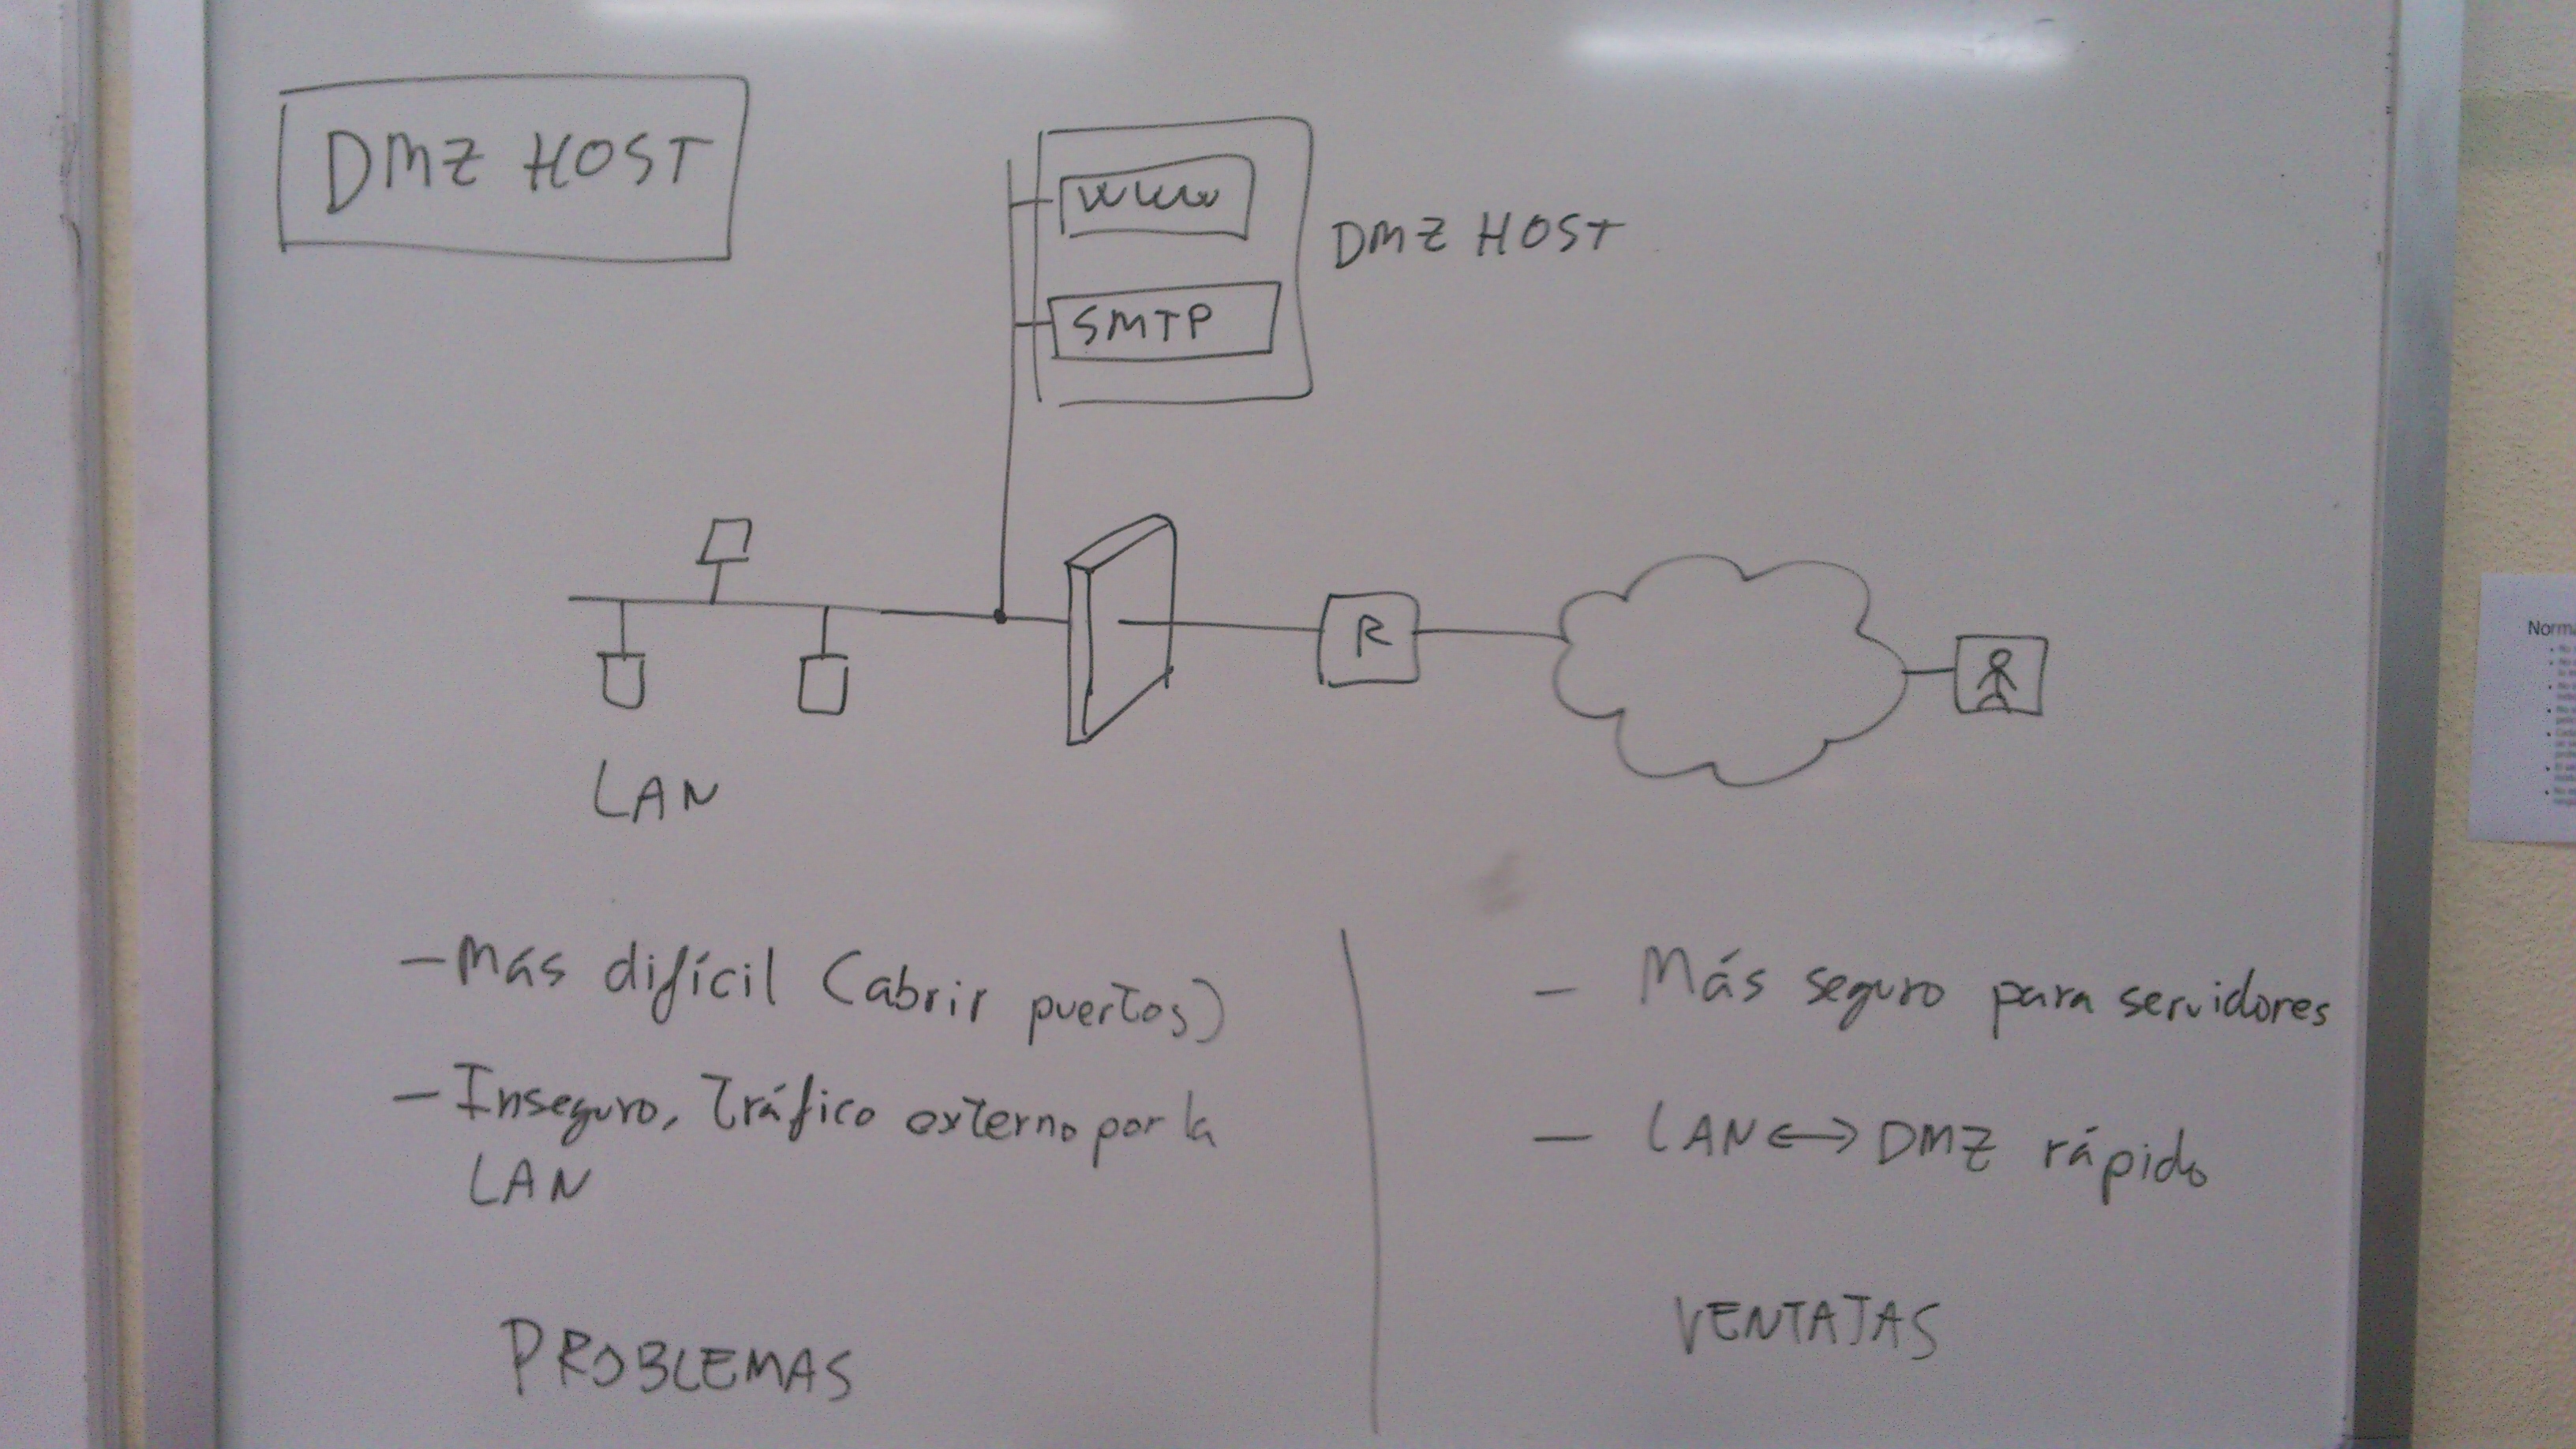 DMZ HOST
WWW
DMZ HOST
SMTP
R
LAN
- Más difícil (abrir puertos)
- Inseguro, Tráfico externo por la
LAN
PROBLEMAS
- Más seguro para servidores
- LAN <-> DMZ rápido
VENTAJAS
Norma